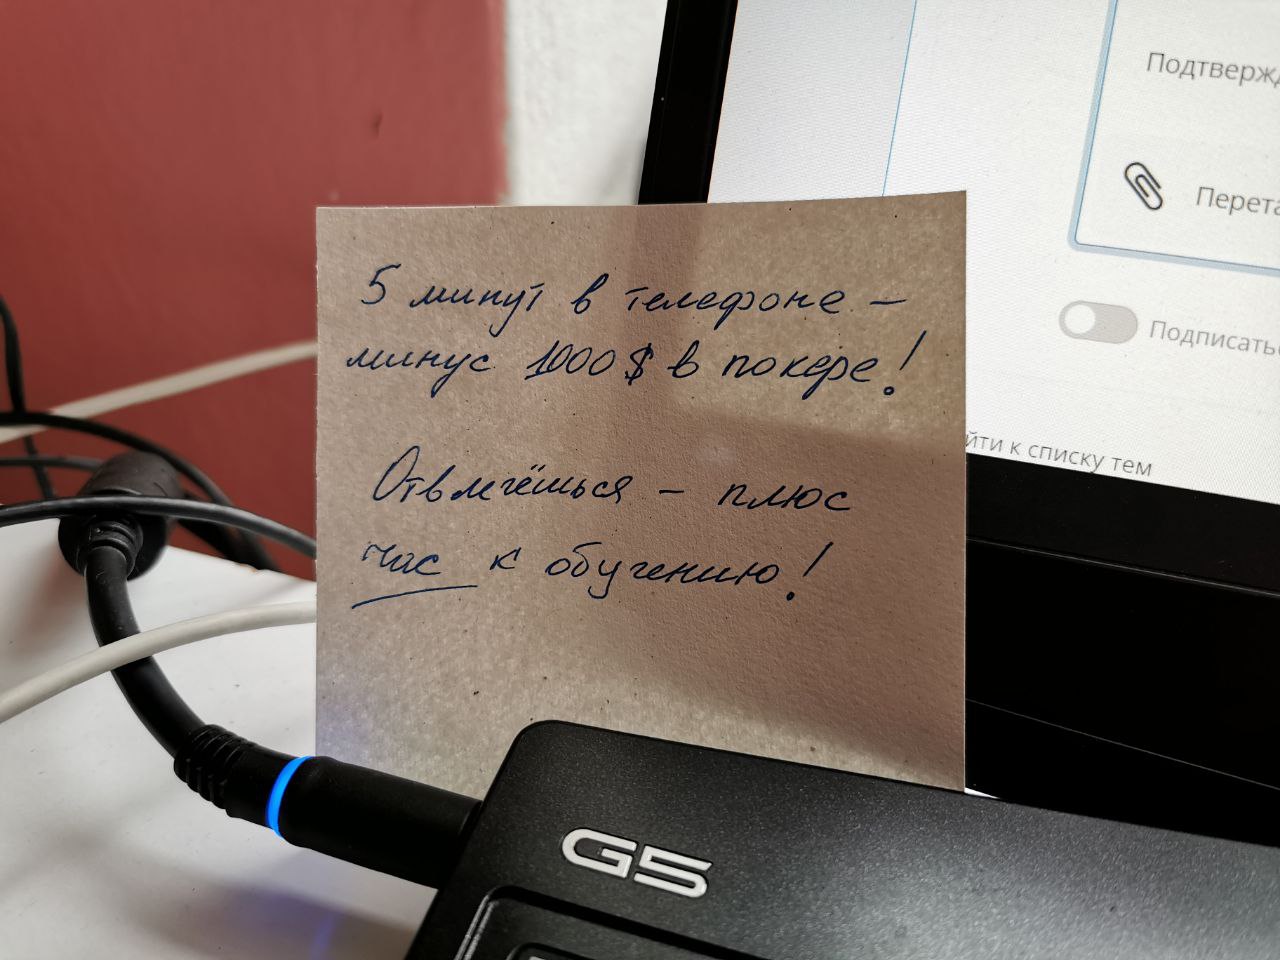 5 минут в телефоне –
минус 1000$ в покере!
Отвлечёшься – плюс
час к обучению!
Подтвержд
Перета
Подписатьс
йти к списку тем
G5